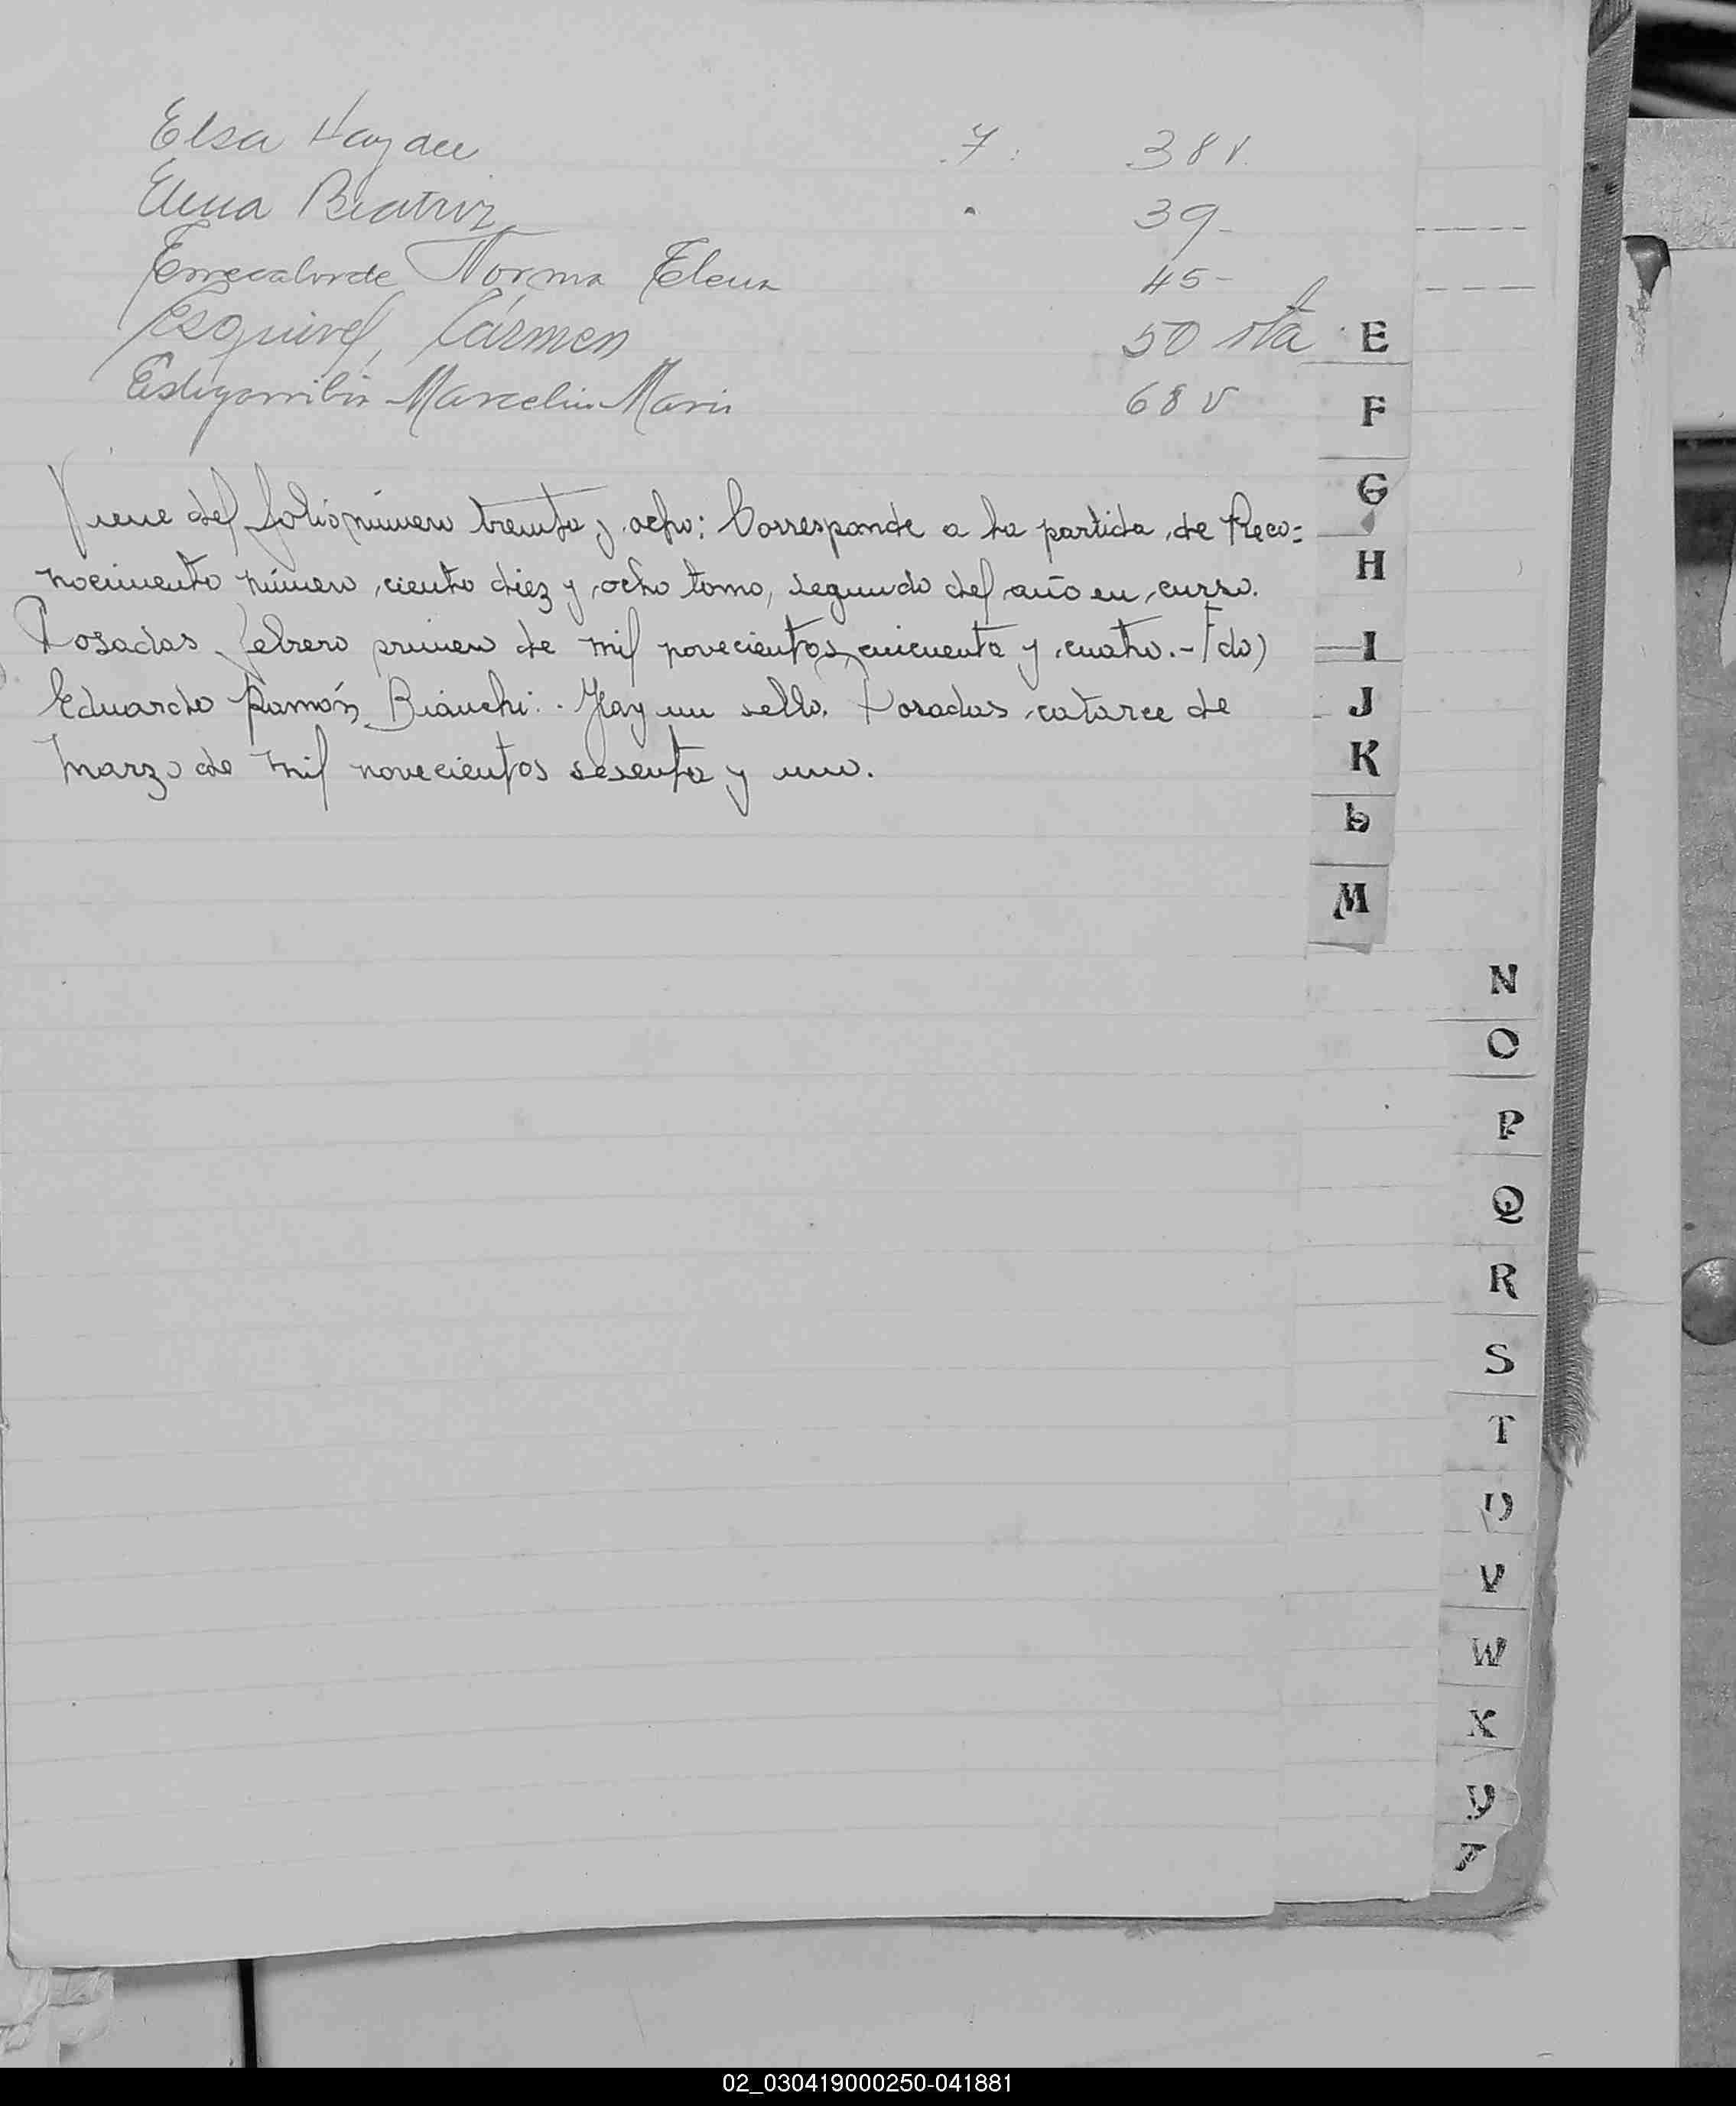 Elsa Haydee 7: 38 v.
Elena Beatriz " 39-
Errecalorde Norma Elena 45-
Esquivel, Cármen 50 vta
Estigarribia Marcelin Maria 68 v
E
F
G
H
I
J
K
L
M
Viene del folio número treinta y ocho: Corresponde a la partida de Reco=
nocimiento número ciento diez y ocho tomo, segundo del año en curso.
Posadas febrero primero de mil novecientos cincuenta y cuatro.- Fdo)
Eduardo Ramón Bianchi. - Hay un sello. Posadas catorce de
Marzo de mil novecientos sesenta y uno.
N
O
P
Q
R
S
T
U
V
W
X
Y
Z
02_030419000250-041881